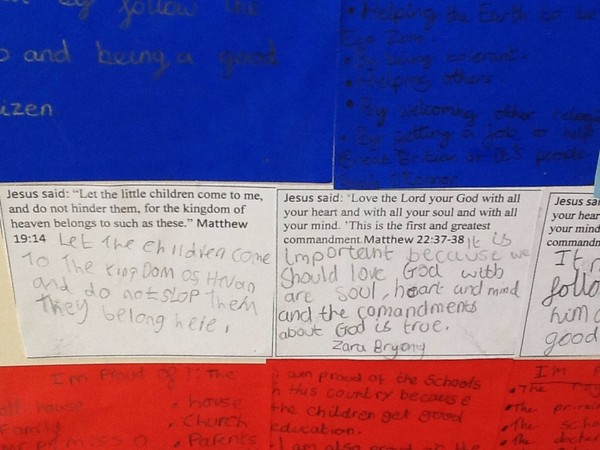 by follow the
and being a good
izen
• Helping the Earth to be
Eco
• By being tolerant.
• Helping others
• By welcoming other
• By getting a job to help
Great Britain
Jesus said: "Let the little children come to me,
and do not hinder them, for the kingdom of
heaven belongs to such as these." Matthew
19:14 Let The children come
To The KingDom of Hevan
and do not stop Them
They belong here,
Jesus said: 'Love the Lord your God with all
your heart and with all your soul and with all
your mind. 'This is the first and greatest
commandment.Matthew 22:37-38 It is
important because we
should love God with
are soul, heart and mind
and the comandments
about God is true.
Zara Bryony
Jesus sa
your hear
your mind
commandn
It
follo
him
good
I'm Proud of : The
house
Family
• house
• Church
• Parents
I am proud of the Schools
this country because
the children get good
education.
I am also proud
I'm
• The
• The
• The scho
• The docto